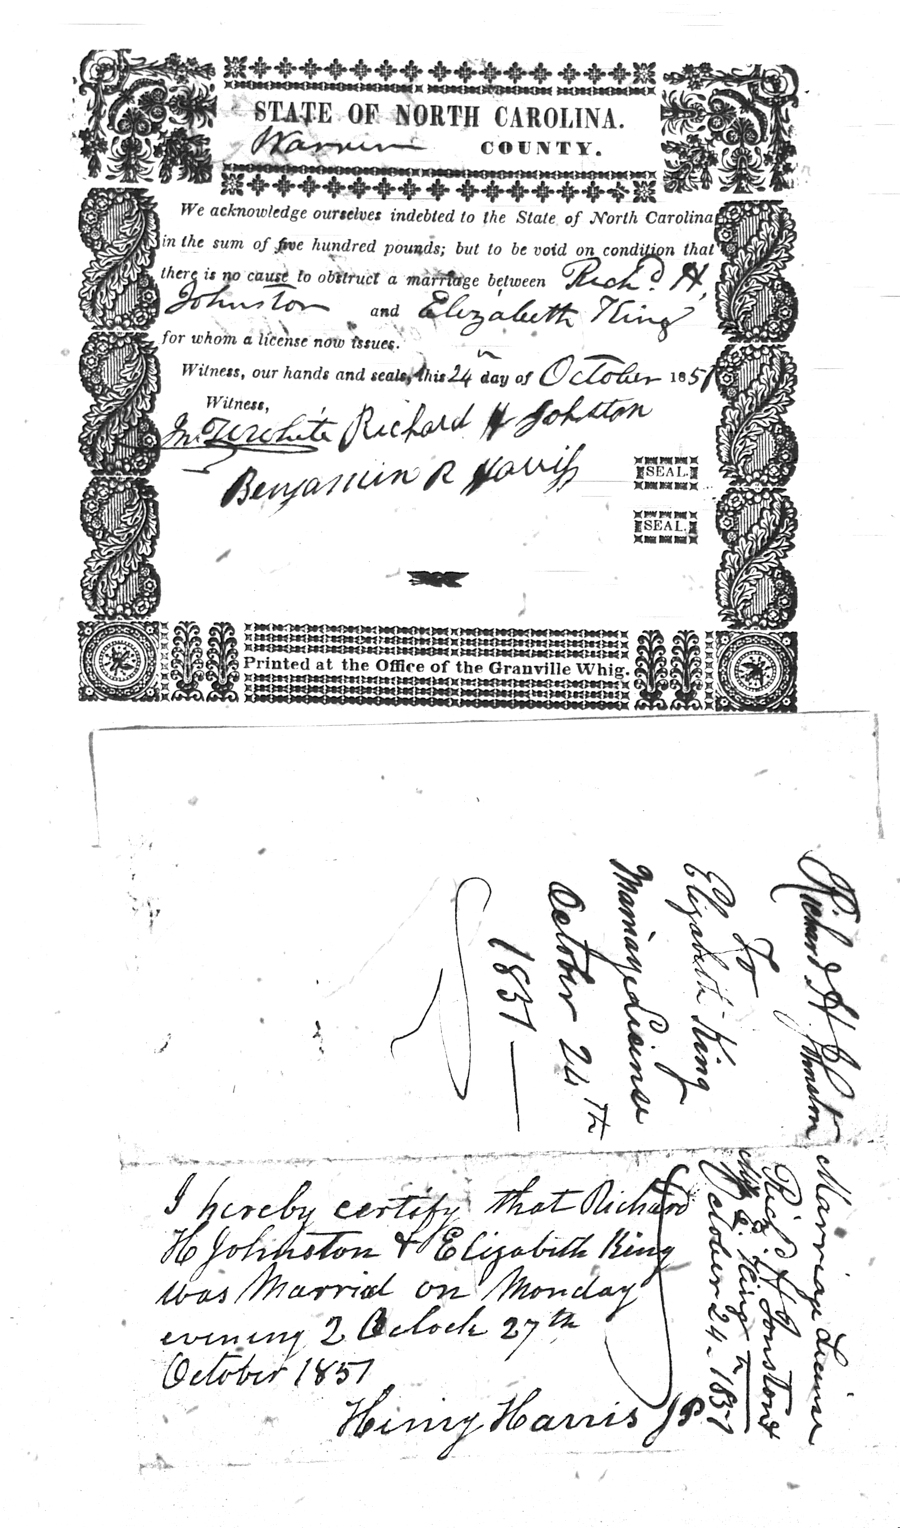 STATE OF NORTH CAROLINA.
Warren COUNTY.
We acknowledge ourselves indebted to the State of North Carolina
in the sum of five hundred pounds; but to be void on condition that
there is no cause to obstruct a marriage between Richd. H,
Johnston and Elizabeth King
for whom a license now issues.
Witness, our hands and seals, this 24th day of October 1851
Witness,
Jn. W. White Richard H Johston
Benjamin R Harriss
SEAL.
SEAL.
Printed at the Office of the Granville Whig.
Richard H Johnston
To
Elizabeth King
Marriage License
October 24th
1851
Marriage License
Richd H Jonston &
E. King
October 24th 1851
I hereby certify that Richard
H Johnston & Elizabeth King
was Marrid on Monday
evening 2 Oclock 27th
October 1851
Henry Harris JP